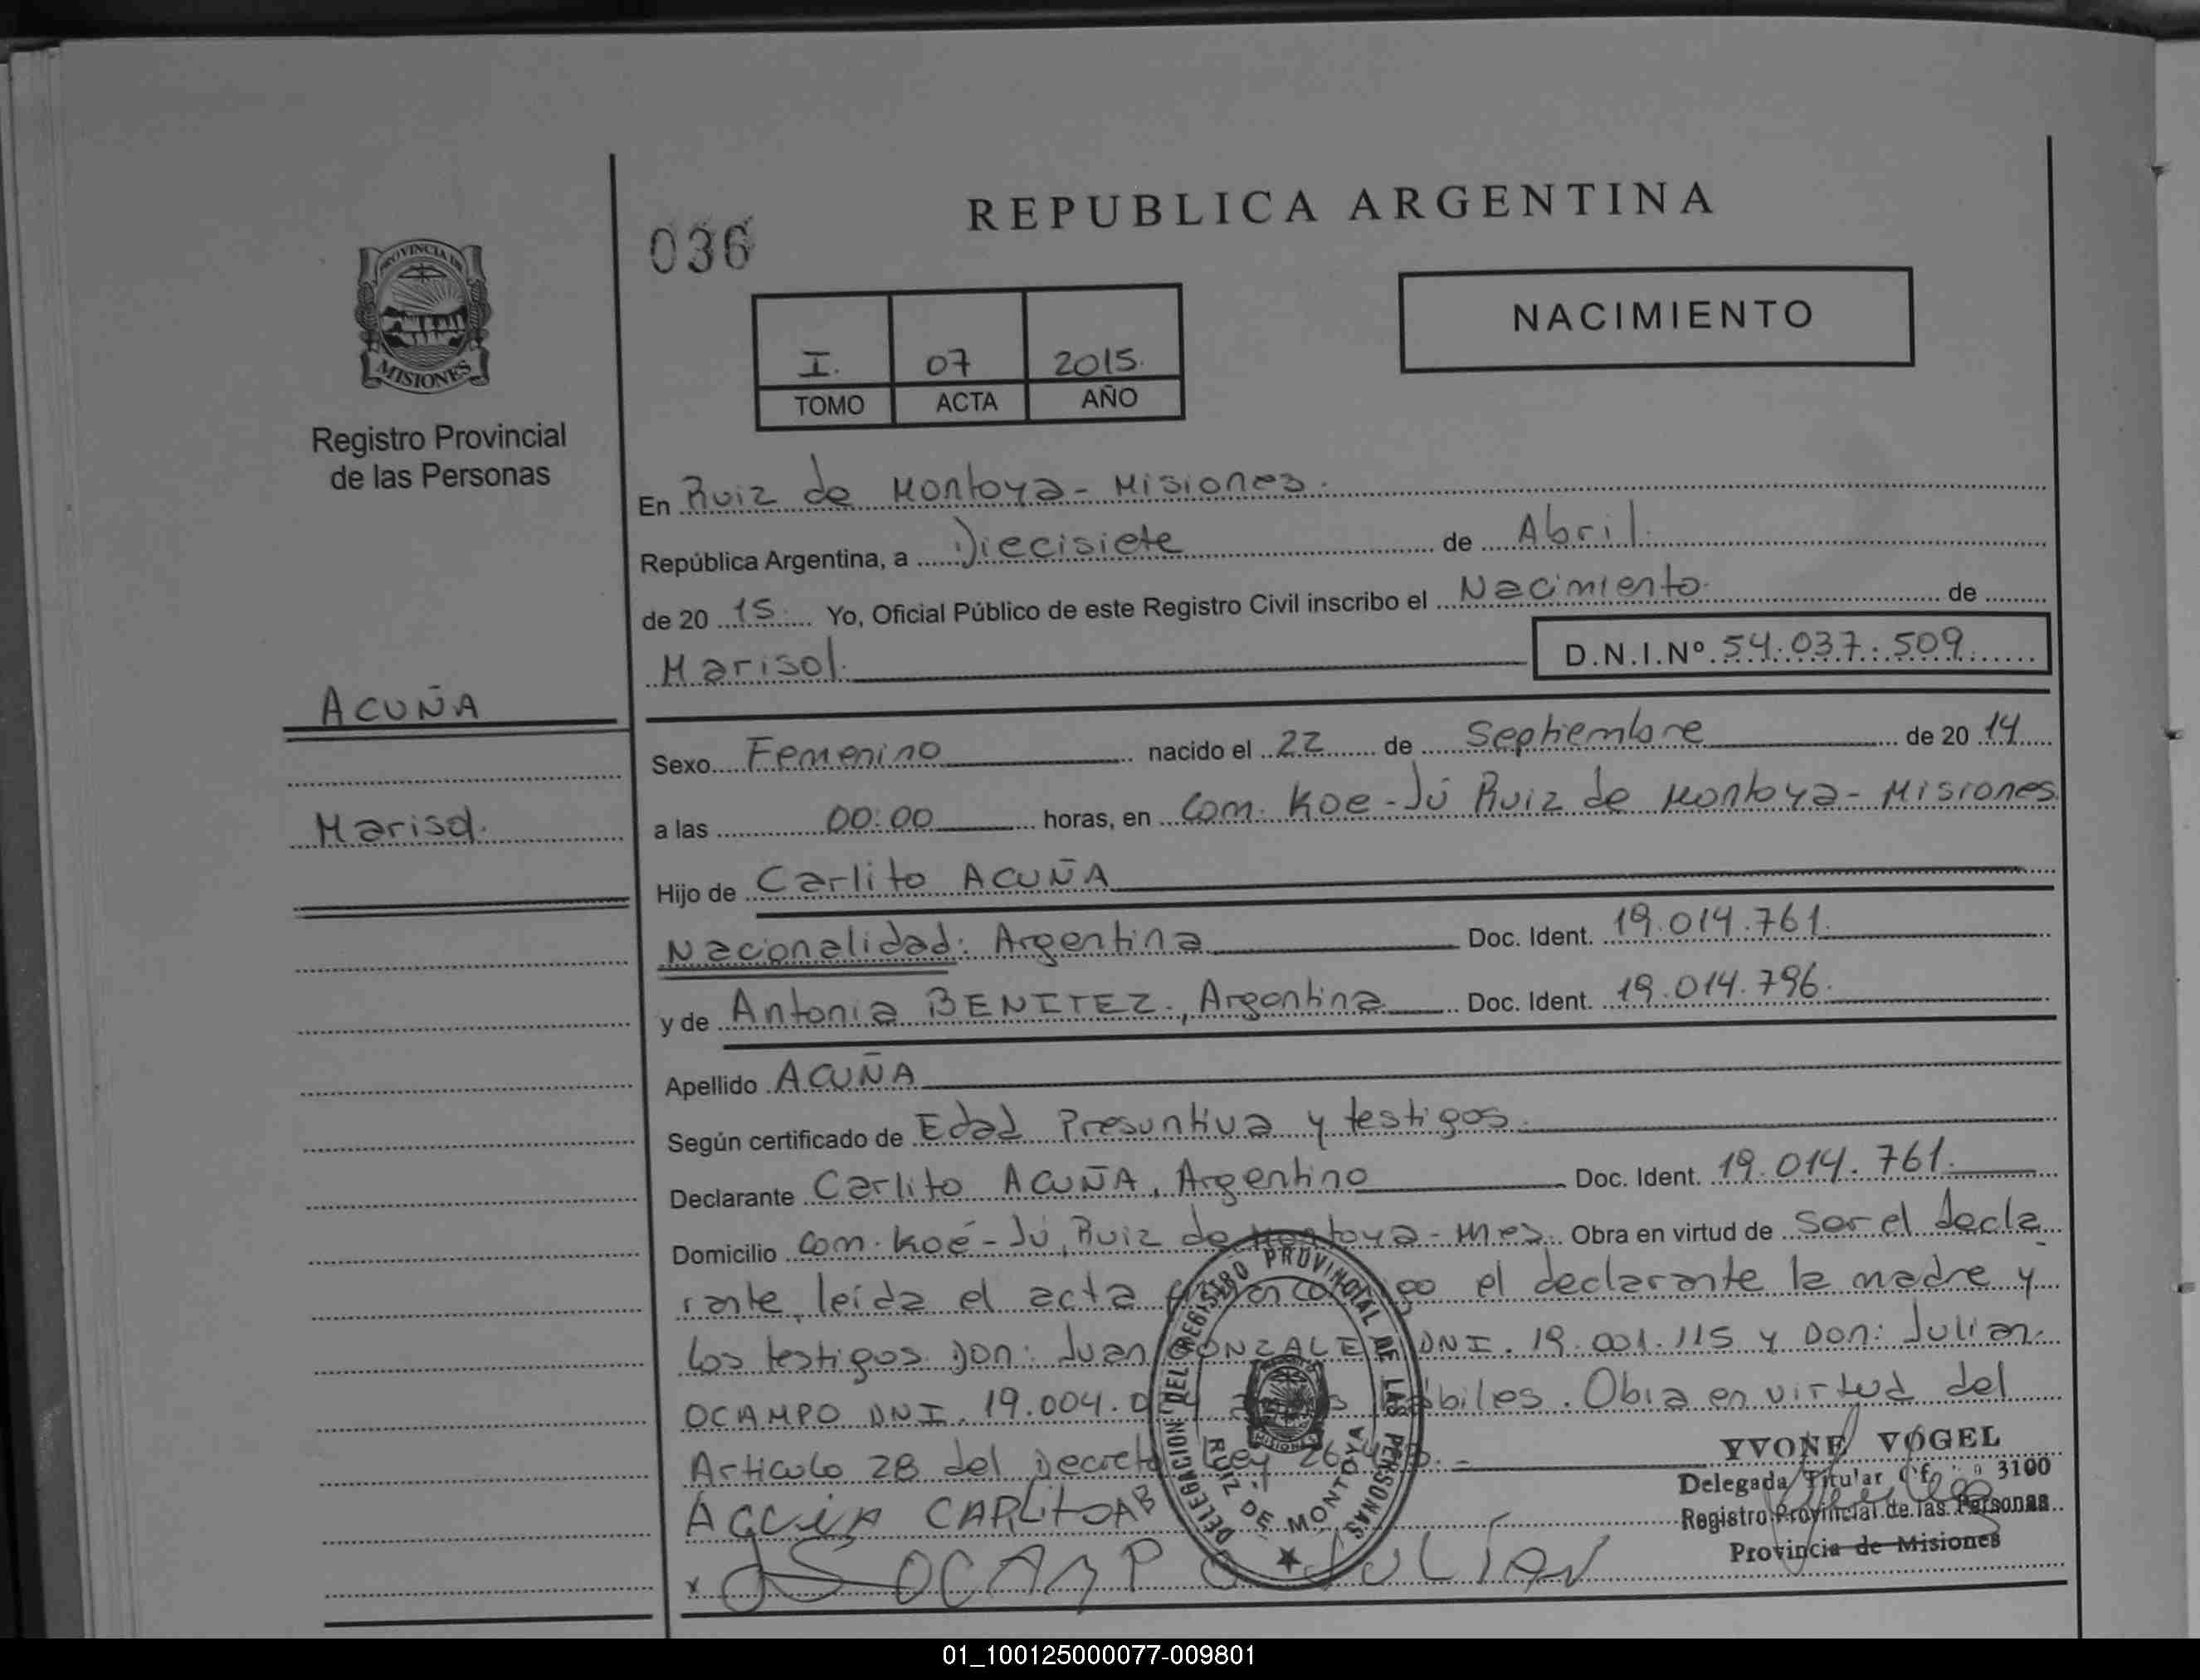 REPUBLICA ARGENTINA
036
NACIMIENTO
PROVINCIA DE
MISIONES
I. 07 2015.
TOMO ACTA AÑO
Registro Provincial
de las Personas
En Ruiz de Montoya - Misiones.
República Argentina, a Diecisiete de Abril.
de 20 15. Yo, Oficial Público de este Registro Civil inscribo el Nacimiento. de
Marisol. D.N.I.Nº 54.037.509
ACUÑA
Marisol.
Sexo Femenino nacido el 22 de Septiembre de 20 14
a las 00:00 horas, en Com. Koe-Jú Ruiz de Montoya - Misiones
Hijo de Carlito ACUÑA
Nacionalidad: Argentina Doc. Ident. 19.014.761.
y de Antonia BENITEZ., Argentina Doc. Ident. 19.014.796.
Apellido ACUÑA
Según certificado de Edad Presuntiva y testigos.
Declarante Carlito ACUÑA, Argentino Doc. Ident. 19.014.761.
Domicilio Com. Koé-Jú, Ruiz de Montoya - Mnes. Obra en virtud de Ser el decla
rante, leída el acta el declarante la madre y
los testigos Don: Juan GONZALEZ DNI. 19.001.115 y Don: Julian
OCAMPO DNI. 19.004. hábiles. Obra en virtud del
Articulo 28 del Decreto Ley
ACUÑA CARLITO AB
OCAMPO JULIAN
DELEGACION DEL REGISTRO PROVINCIAL DE LAS PERSONAS
RUIZ DE MONTOYA
MISIONES
YVONE VOGEL
Delegada Titular 3100
Registro Provincial de las Personas
Provincia de Misiones
01_100125000077-009801